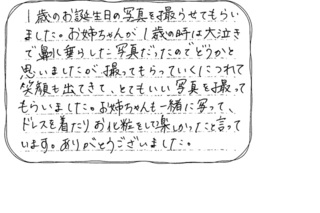 1歳のお誕生日の写真を撮らせてもらい
ました。お姉ちゃんが1歳の時は大泣き
で鼻し垂らした写真だったのでどうかと
思いましたが、撮ってもらっていくにつれて
笑顔も出てきて、とてもいい写真を撮って
もらいました。お姉ちゃんも一緒に写って、
ドレスを着たりお化粧をして楽しかったと言って
います。ありがとうございました。